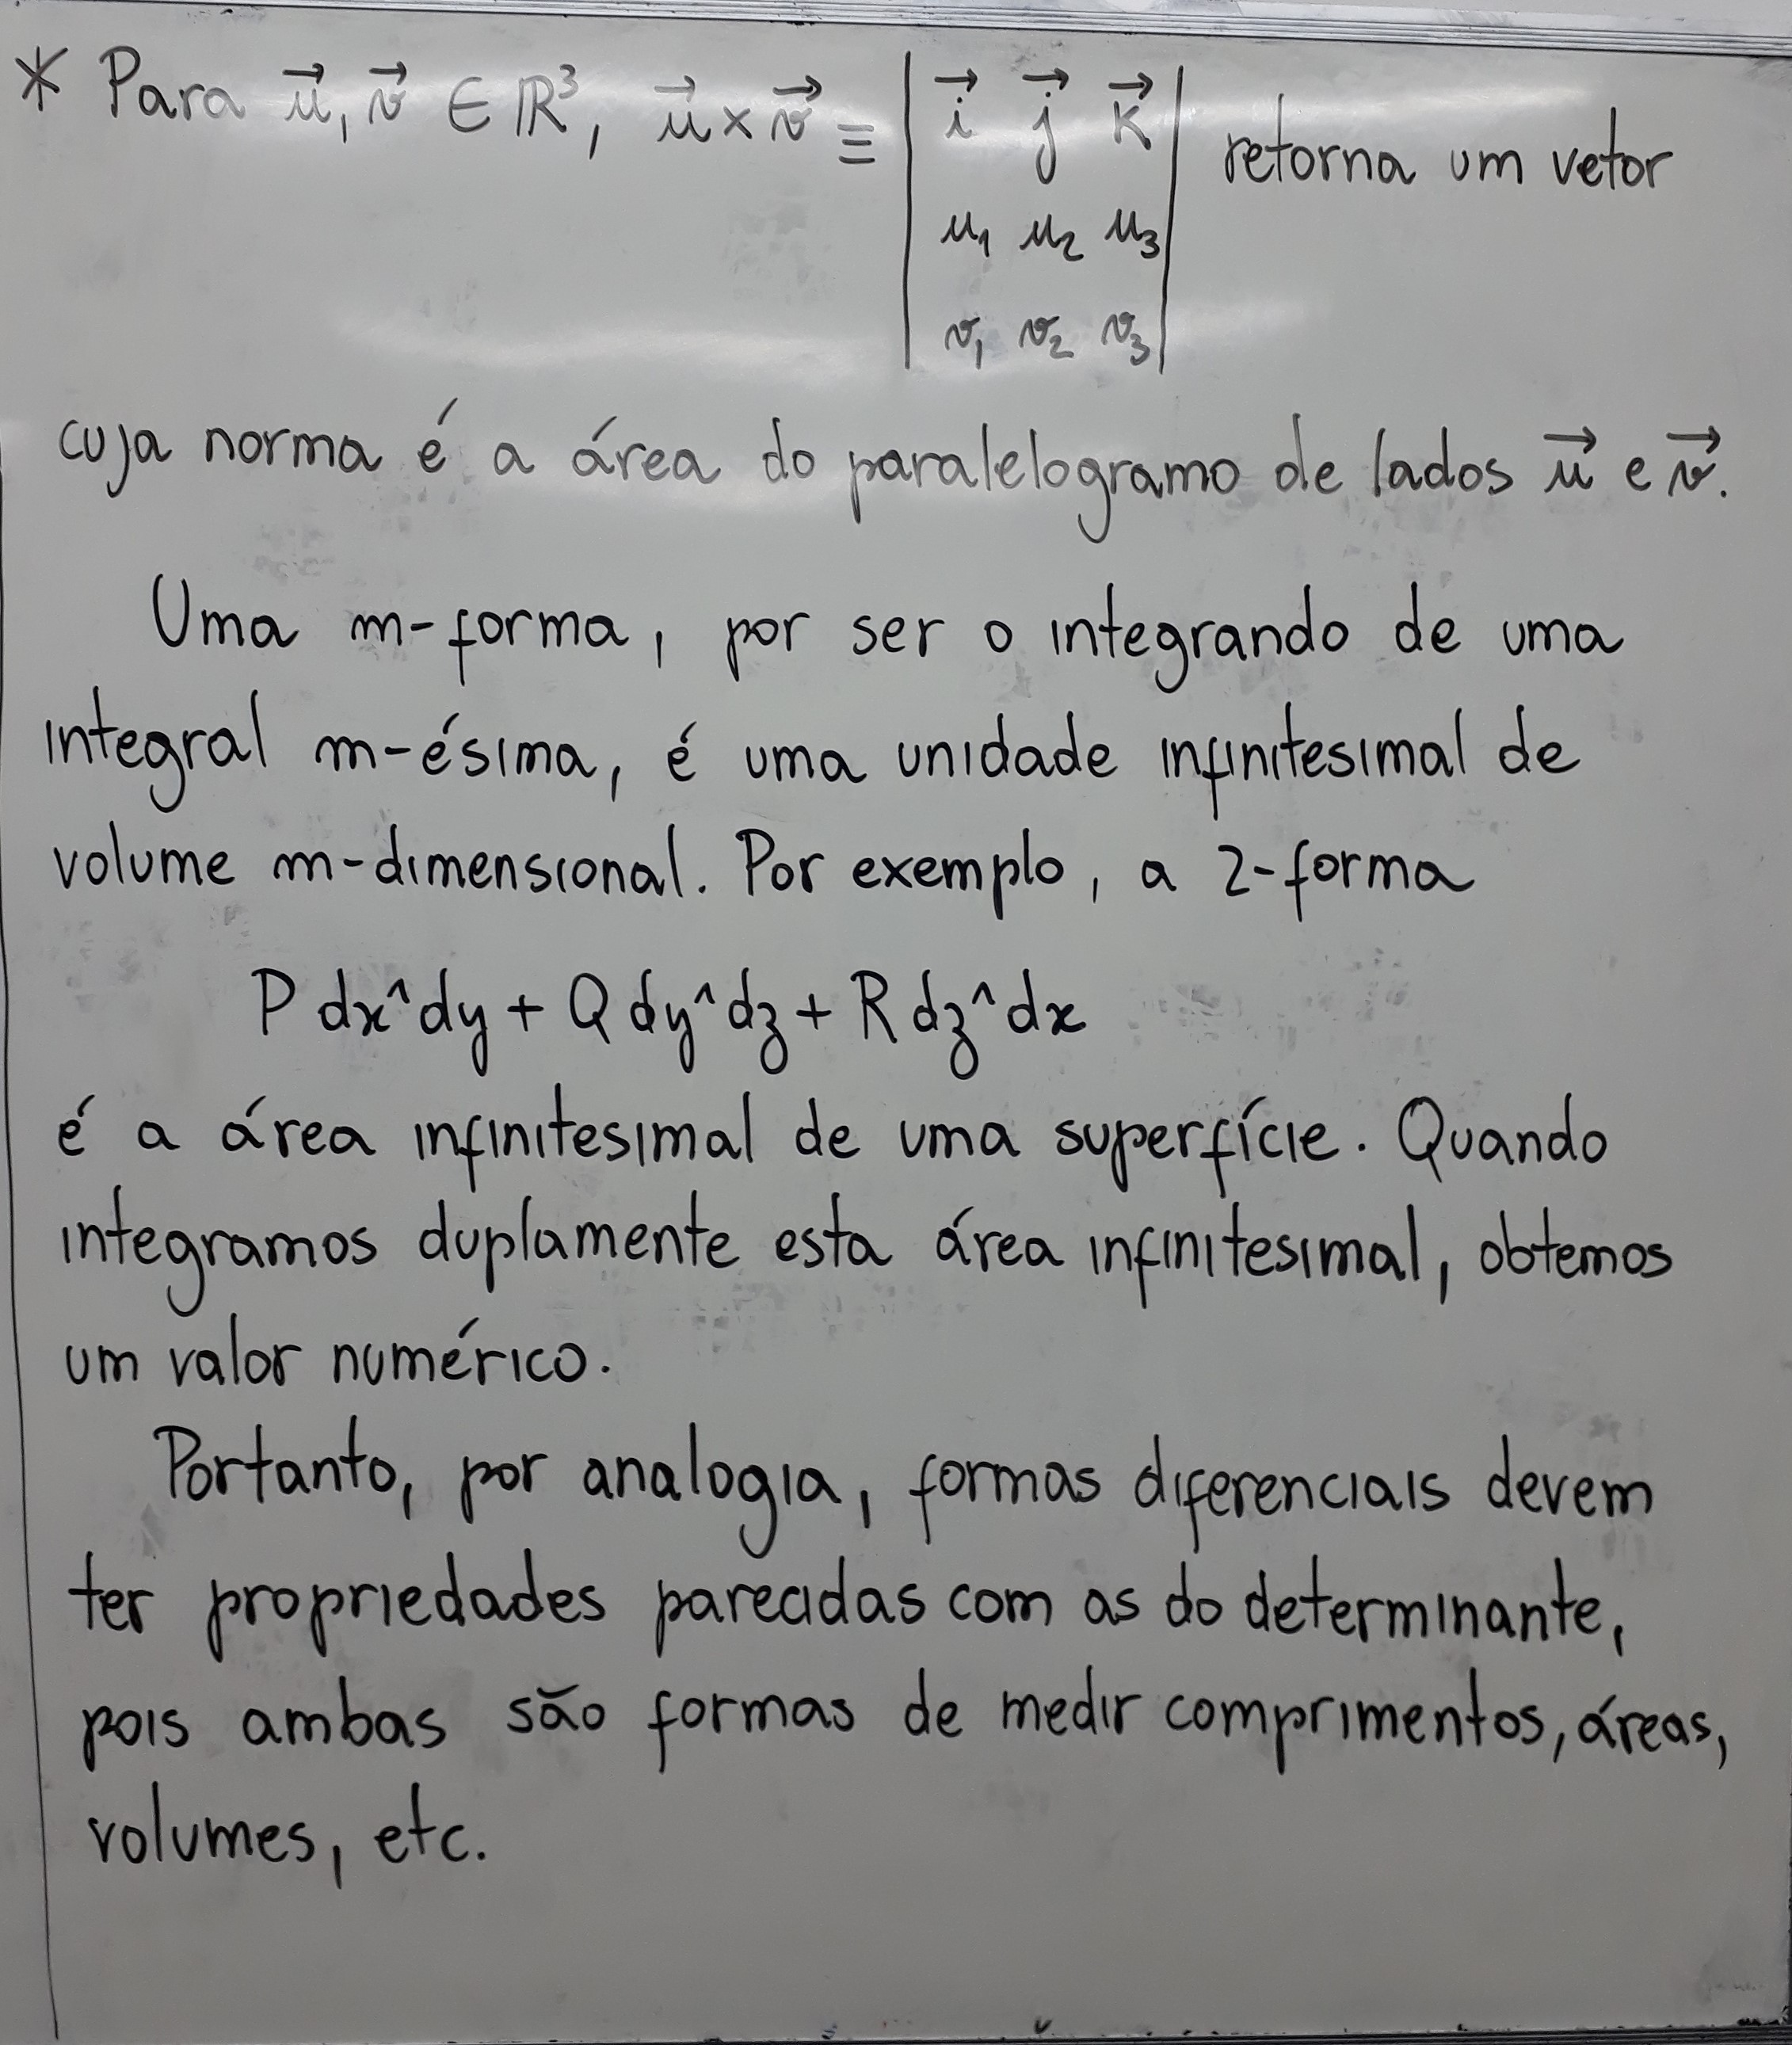 * Para u⃗, v⃗ ∈ ℝ³, u⃗ × v⃗ ≡ | i⃗ j⃗ k⃗ | retorna um vetor
| u₁ u₂ u₃ |
| v₁ v₂ v₃ |
cuja norma é a área do paralelogramo de lados u⃗ e v⃗.
Uma m-forma, por ser o integrando de uma
integral m-ésima, é uma unidade infinitesimal de
volume m-dimensional. Por exemplo, a 2-forma
P dx^dy + Q dy^dz + R dz^dx
é a área infinitesimal de uma superfície. Quando
integramos duplamente esta área infinitesimal, obtemos
um valor numérico.
Portanto, por analogia, formas diferenciais devem
ter propriedades parecidas com as do determinante,
pois ambas são formas de medir comprimentos, áreas,
volumes, etc.